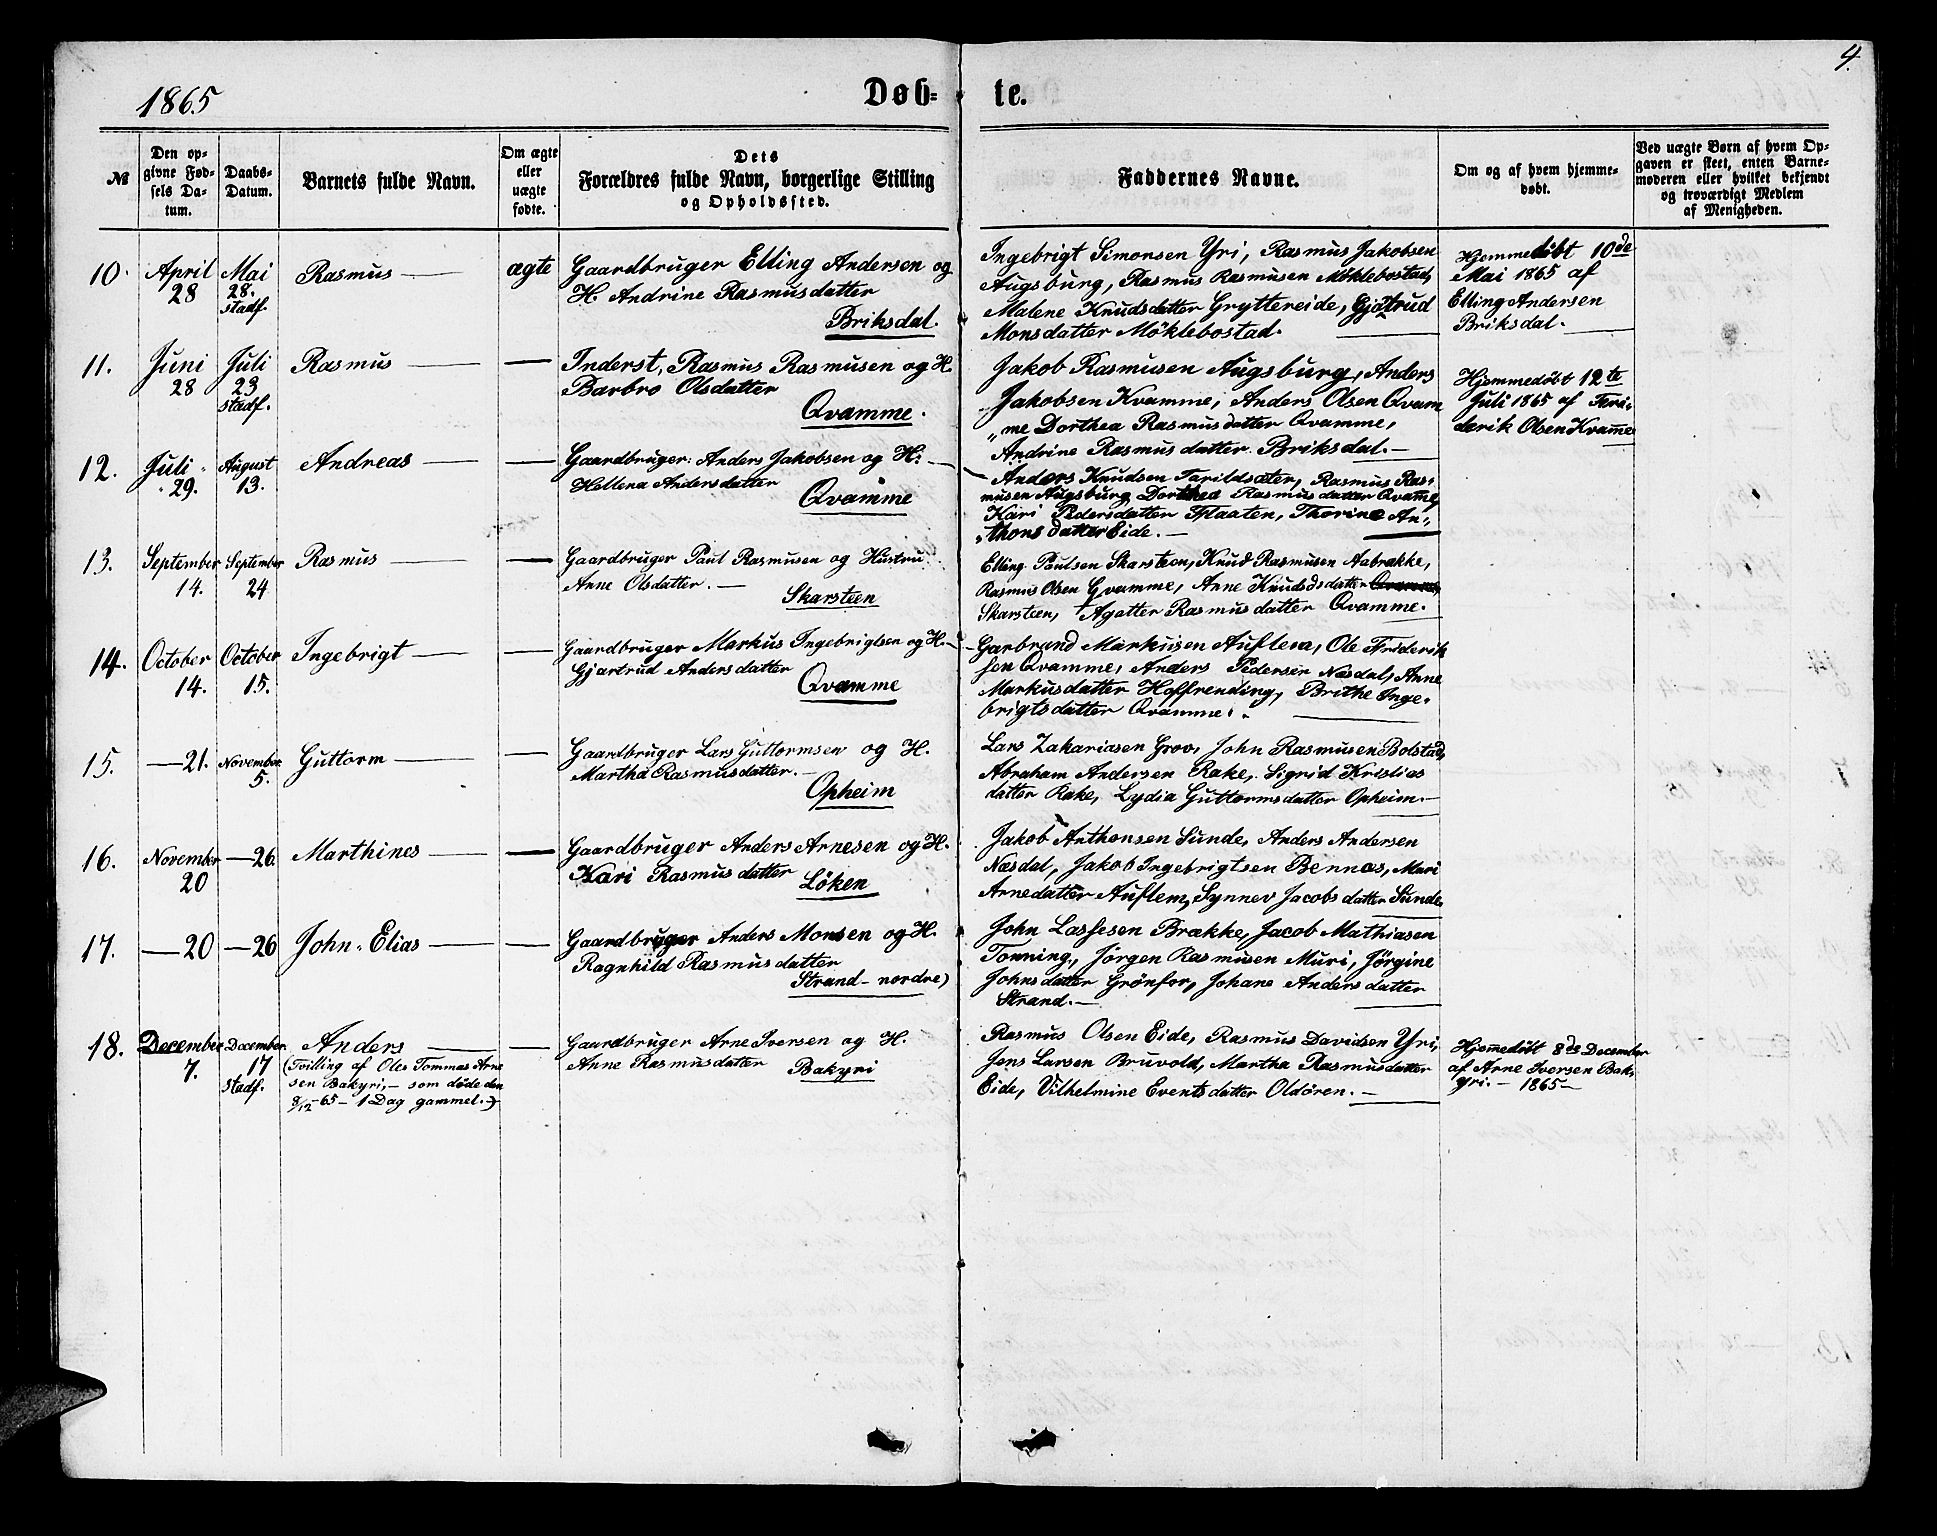 4.
1865
Døb- te.
№
Den op-
givne Fød-
sels Da-
tum.
Daabs-
Datum.
Barnets fulde Navn.
Om ægte
eller
uægte
fødte.
Dets
Forældres fulde Navn, borgerlige Stilling
og Opholdssted.
Faddernes Navne.
Om og af hvem hjemme-
døbt.
Ved uægte Børn af hvem Op-
gaven er skeet, enten Barne-
moderen eller hvilket bekjendt
og troværdigt Medlem
af Menigheden.
10.
April
28
Mai
28.
stadf.
Rasmus
ægte
Gaardbruger Elling Andersen og
H. Andrine Rasmusdatter
Briksdal.
Ingebrigt Simonsen Yri, Rasmus Jakobsen
Augsburg, Rasmus Rasmusen Møklebostad,
Malene Knudsdatter Gryttereide, Gjøtrud
Monsdatter Møklebostad.
Hjemmedøbt 10de
Mai 1865 af
Elling Andersen
Briksdal.
11.
Juni
28
Juli
23
stadf.
Rasmus
—
Inderst, Rasmus Rasmusen og H.
Barbro Olsdatter
Qvamme.
Jakob Rasmusen Augsburg, Anders
Jakobsen Kvamme, Anders Olsen Qvam
„me Dorthea Rasmusdatter Qvamme,
Andrine Rasmusdatter Briksdal.—
Hjemmedøbt 12te
Juli 1865 af
derik Olsen Kvamme
12.
Juli
29.
August
13.
Andreas
—
Gaardbruger: Anders Jakobsen og H:
Hellena Andersdatter
Qvamme
Anders Knudsen Tarildsæten, Rasmus Ras-
musen Augsburg, Dorthea Rasmusdatter Qvamme,
Kari Pedersdatter Flaaten, Thorine An-
„thonsdatter Eide.—
13.
September
14.
September
24
Rasmus
—
Gaardbruger Paul Rasmusen og Hustru
Anne Olsdatter.—
Skarsteen
Elling Paulsen Skarsteen, Knud Rasmusen Aabrække,
Rasmus Olsen Qvamme, Anne Knudsdatter Qvamme,
Skarsteen, † Agatter Rasmusdatter Qvamme.
14.
October
14.
October
15.
Ingebrigt
—
Gaardbruger Markus Ingebrigtsen og H.
Gjartrud Andersdatter
Qvamme
Garbrand Markusen Auflem, Ole Friderik
sen Qvamme, Anders Pedersen Næsdal, Anne
Markusdatter Hoffrending, Brithe Inge-
brigtsdatter Qvamme.
15.
—21.
November
5.
Guttorm
—
Gaardbruger Lars Guttormsen og H.
Martha Rasmusdatter.—
Opheim
Lars Zakariasen Grov, John Rasmusen Bolstad,
Abraham Andersen Rake, Sigrid Kristias
datter Rake, Lydia Guttormsdatter Opheim.—
16.
November
20
—26
Marthines
—
Gaardbruger Anders Arnesen og H.
Kari Rasmusdatter
Løken
Jakob Anthonsen Sunde, Anders Andersen
Næsdal, Jakob Ingebrigtsen Bennæs, Mari
Arnedatter Auflem, Synnev Jacobsdatter Sunde
17.
—20
—26
John Elias
—
Gaardbruger Anders Monsen og H.
Ragnhild Rasmusdatter
Strand - nordre)
John Lassesen Brække, Jacob Mathiasen
Tonning, Jørgen Rasmusen Muri, Jørgine
Johnsdatter Grønfor, Johane Andersdatter
Strand.—
18.
December
7.
December
17
stadf.
Anders
(Tvilling af Ole Tommas Arne
sen Bakyri,— som døde den
8/12-65 - 1 Dag gammel.)
—
Gaardbruger Arne Iversen og H.
Anne Rasmusdatter
Bakyri
Rasmus Olsen Eide, Rasmus Davidsen Yri,
Jens Larsen Bruvold, Martha Rasmusdatter
Eide, Vilhelmine Eventsdatter Oldøren.—
Hjemmedøbt 8de December
af Arne Iversen Bak-
yri.— 1865—